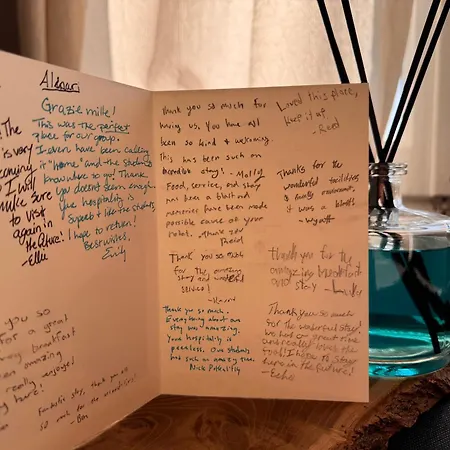 Aldaari
The
is very
coming
I will
make sure
to visit
again in
the future!
- Ellie
Grazie mille!
This was the perfect
place for our group.
I even have been calling
it "home" and the students
knew where to go! Thank
you doesn't seem enough.
The hospitality is
superb + like the students,
I hope to return!
Best wishes,
Emily
you so
for a great
very breakfast
an amazing
really enjoyed
being here!
fantastic stay, thank you all
so much for the
- Ben
Thank you so much for
having us, You have all
been so kind & welcoming.
This has been such an
incredible stay! - Molly
Food, service, and stay
has been a blast and
memories have been made
possible cause of your
hotel. Thank you
Thank you so much
for the amazing
stay and wonderful
service!
Thank you so much.
Everything about our
stay was amazing.
Your hospitality is
peerless. Our students
had such an amazing time.
Nick
Loved this place,
keep it up
- Reed
Thanks for the
wonderful facilities
& family environment,
it was a blast!
- Wyatt
Thank you for the
amazing breakfast
and stay - Lucky
Thank you so much
for the wonderful stay!
We had a great time
and really loved the
food! I hope to stay
here in the future!
- Echo